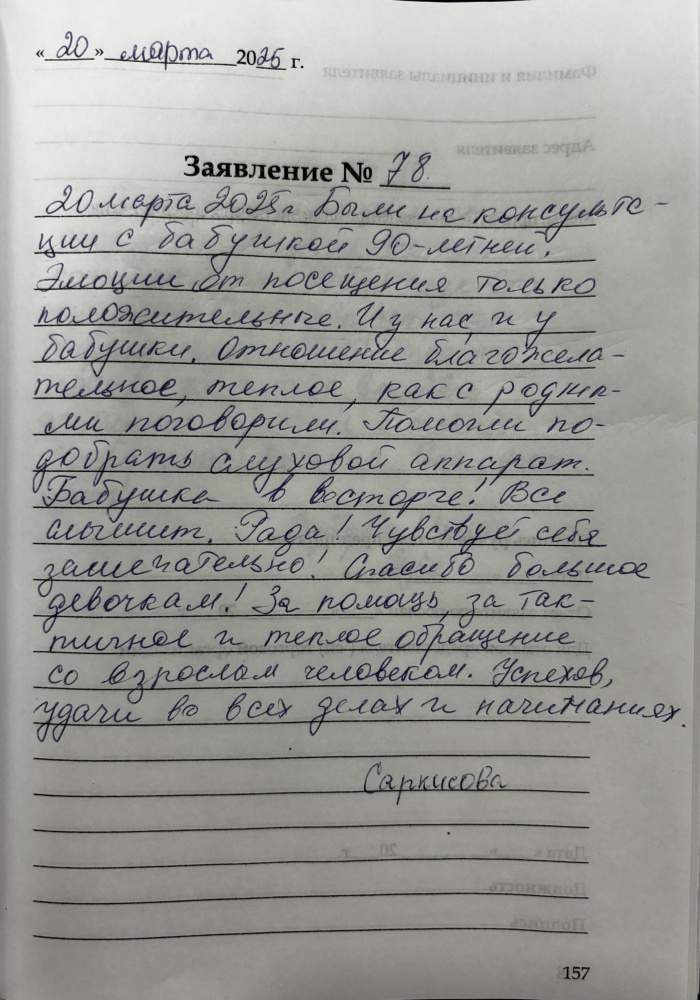 «20» марта 2025 г.
Заявление № 78.
20 марта 2025 г. Были на консульта-
ции с бабушкой 90-летней.
Эмоции от посещения только
положительные. И у нас и у
бабушки. Отношение благожела-
тельное, теплое, как с родны-
ми поговорили. Помогли по-
добрать слуховой аппарат.
Бабушка в восторге! Все
слышит. Рада! Чувствует себя
замечательно! Спасибо большое
девочкам! За помощь, за так-
тичное и теплое обращение
со взрослым человеком. Успехов,
удачи во всех делах и начинаниях.
Саркисова
157
Фамилия и инициалы заявителя
Адрес заявителя
Дата « г. 20 г.
Должность
Подпись